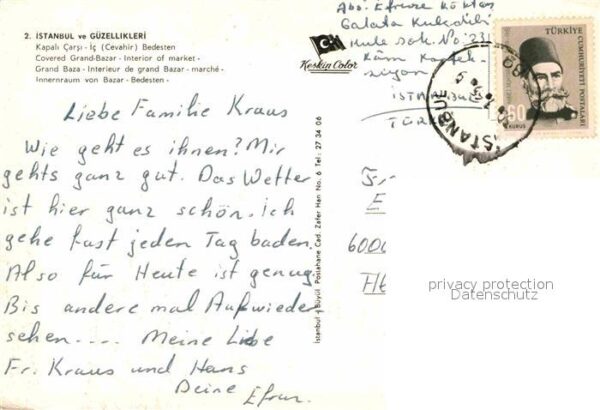 2. İSTANBUL ve GÜZELLİKLERİ
Kapalı Çarşı - İç (Cevahir) Bedesten
Covered Grand-Bazar - Interior of market -
Grand Baza - Interieur de grand Bazar - marché -
Innenraum von Bazar - Bedesten -
Keskin Color
Liebe Familie Kraus
Wie geht es ihnen? Mir
gehts ganz gut. Das Wetter
ist hier ganz schön. ich
gehe fast jeden Tag baden.
Also für Heute ist genug
Bis andere mal Aufwieder-
sehen.... Meine Liebe
Fr. Kraus und Hans
Deine Efruz.
İstanbul - Büyük Postahane Cad. Zafer Han No. 6 Tel: 27 34 06
Galata
Kule sok. No: 231
İSTANBUL
TÜRK
TÜRKİYE
CUMHURİYETİ POSTALARI
50
KURUŞ
İSTANBUL
6000
privacy protection
Datenschutz